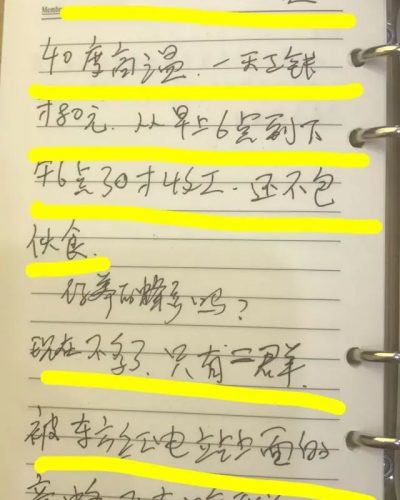 Membe
40度高温.一天工钱
才80元.从早上6点到下
午6点30才收工.还不包
伙食.
你养的蜂多吗?
现在不多了.只有二群.
被东方红电站上面的